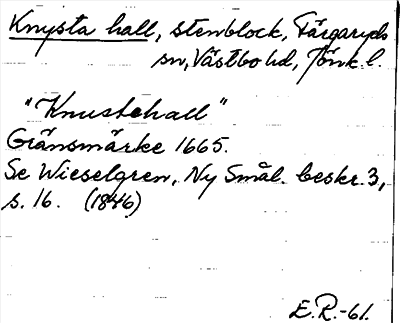 Knysta hall, stenblock, Färgaryds
sn, Västbo hd, Jönk. l.
"Knustehall"
Gränsmärke 1665.
Se Wieselgren, Ny Smål. beskr. 3,
s. 16. (1846)
E.R.-61.